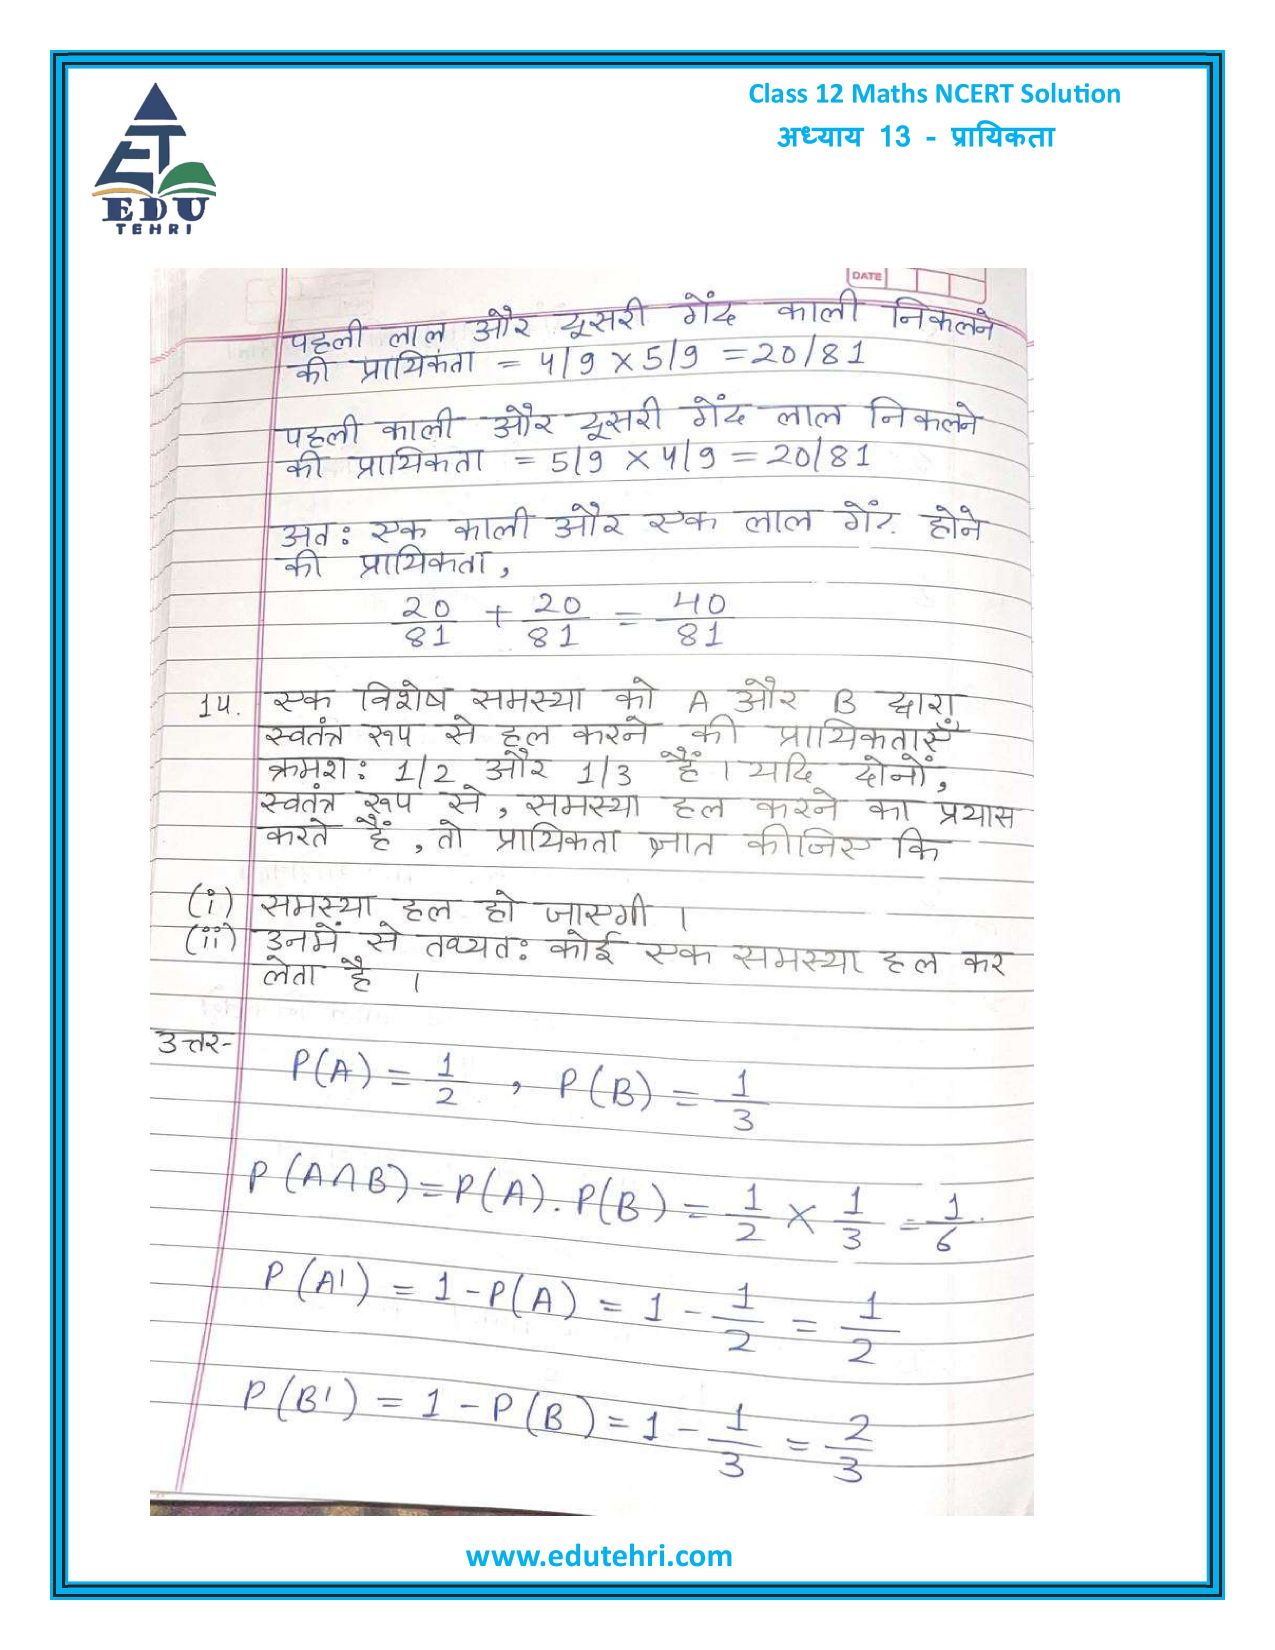 Class 12 Maths NCERT Solution
अध्याय 13 - प्रायिकता
EDU
TEHRI
DATE
पहली लाल और दूसरी गेंद काली निकलने
की प्रायिकता = 4/9 × 5/9 = 20/81
पहली काली और दूसरी गेंद लाल निकलने
की प्रायिकता = 5/9 × 4/9 = 20/81
अत: एक काली और एक लाल गेंद होने
की प्रायिकता,
20/81 + 20/81 = 40/81
14. एक विशेष समस्या को A और B द्वारा
स्वतंत्र रूप से हल करने की प्रायिकताएँ
क्रमश: 1/2 और 1/3 हैं । यदि दोनों,
स्वतंत्र रूप से, समस्या हल करने का प्रयास
करते हैं, तो प्रायिकता ज्ञात कीजिए कि
(i) समस्या हल हो जाएगी ।
(ii) उनमें से तथ्यत: कोई एक समस्या हल कर
लेता है ।
उत्तर-
P(A) = 1/2 , P(B) = 1/3
P(A∩B) = P(A) . P(B) = 1/2 × 1/3 = 1/6
P(A') = 1 - P(A) = 1 - 1/2 = 1/2
P(B') = 1 - P(B) = 1 - 1/3 = 2/3
www.edutehri.com